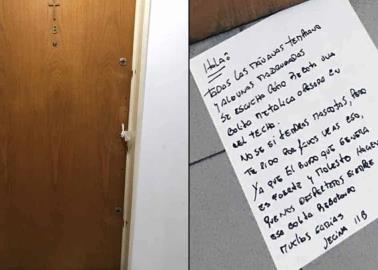 Hola:
TODAS LAS MAÑANAS TEMPRANO
Y ALGUNAS MADRUGADAS
SE ESCUCHA COMO REBOTA UNA
BOLITA METALICA O PESADA EN
EL TECHO.
NO SE SI TENDRAS MASCOTAS, PERO
TE PIDO POR FAVOR VEAS ESO,
YA QUE EL RUIDO QUE GENERA
ES FUERTE Y MOLESTO
QUE NOS DESPERTAMOS SIEMPRE
ESA BOLITA REBOTANDO
MUCHAS GRACIAS
VECINA 11B